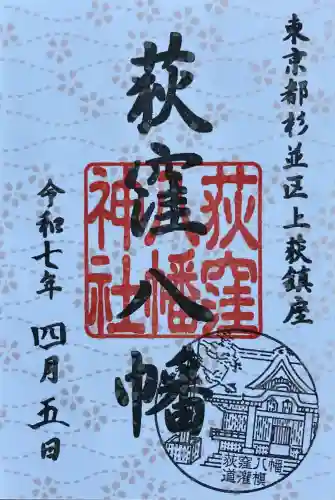 東京都杉並区上荻鎮座
荻窪八幡
荻窪
八幡
神社
令和七年 四月五日
荻窪八幡
道灌槇